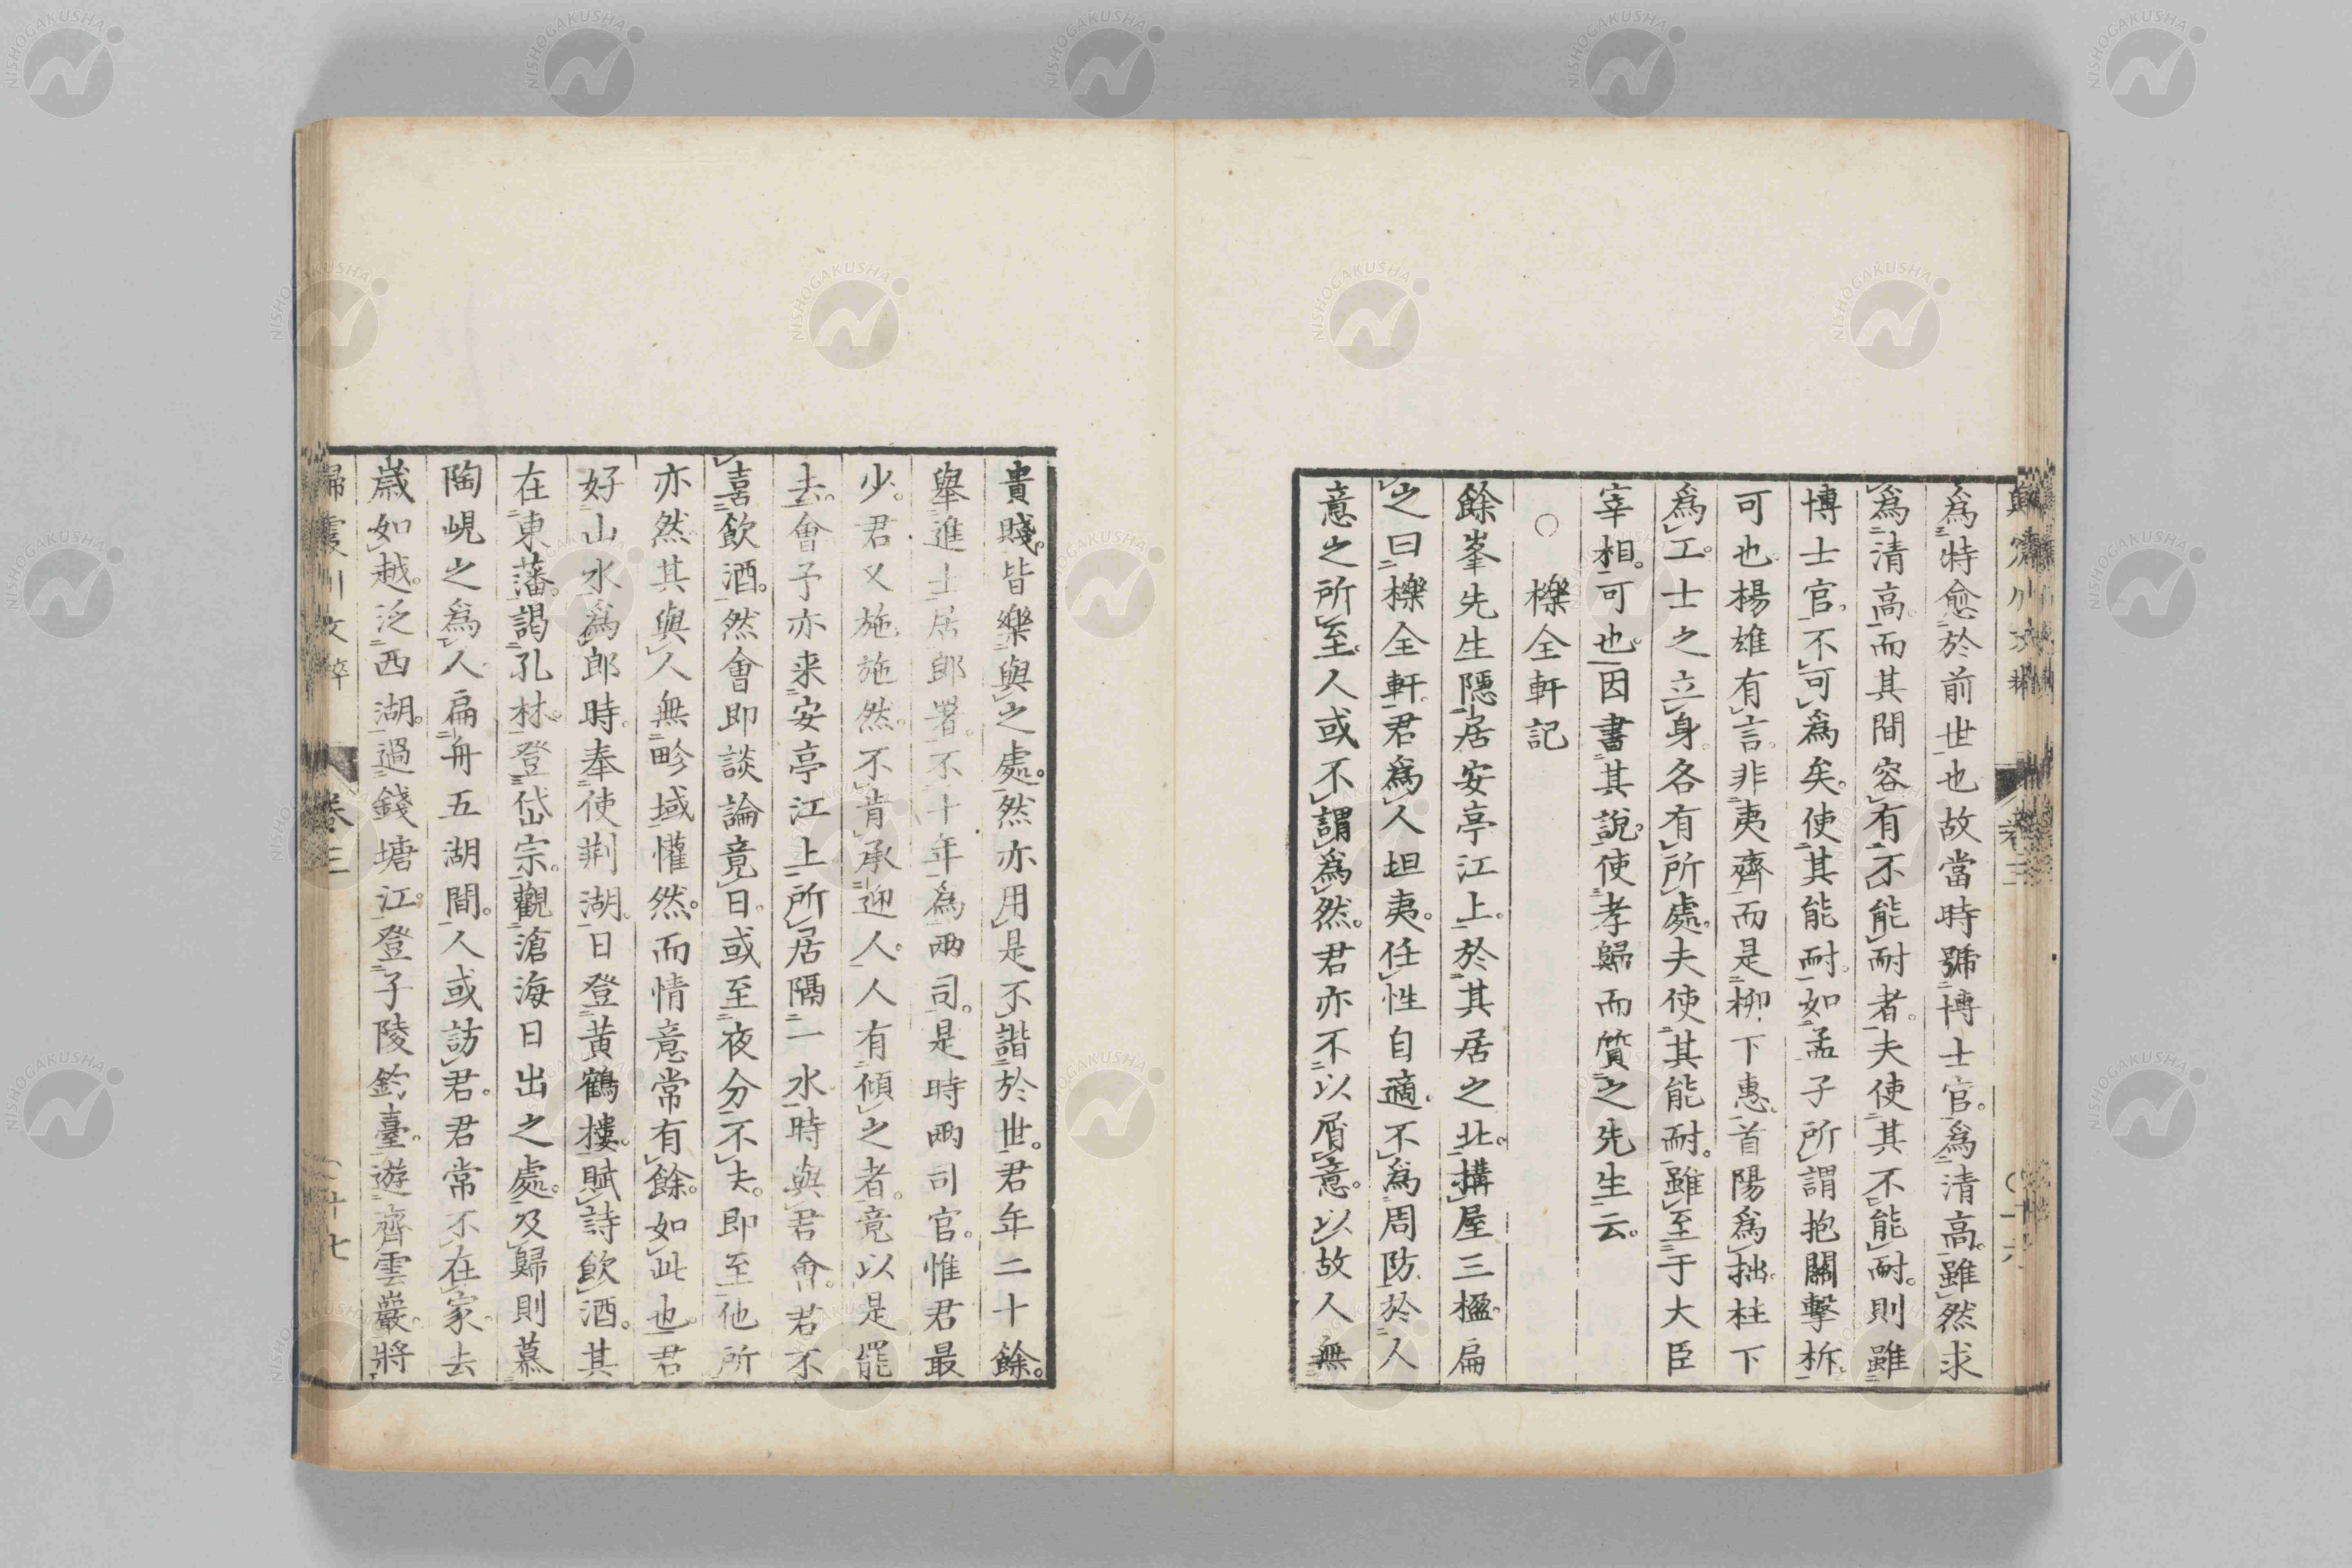 爲特愈於前世也故當時號博士官爲清高雖然求
爲清高而其間容有不能耐者夫使其不能耐則雖
博士官不可爲矣使其能耐如孟子所謂抱關擊柝
可也楊雄有言非夷齊而是柳下惠首陽爲拙柱下
爲工士之立身各有所處夫使其能耐雖至于大臣
宰相可也因書其說使孝歸而質之先生云
○櫟全軒記
餘峯先生隱居安亭江上於其居之北構屋三楹扁
之曰櫟全軒君爲人坦夷任性自適不爲周防於人
意之所至人或不謂爲然君亦不以屑意以故人無
貴賤皆樂與之處然亦用是不諧於世君年二十餘
舉進士居郎署不十年爲兩司是時兩司官惟君最
少君又施施然不肯承迎人人有傾之者竟以是罷
去會予亦来安亭江上所居隔一水時與君會君不
喜飲酒然會即談論竟日或至夜分不去即至他所
亦然其與人無畛域懽然而情意常有餘如此也君
好山水爲郎時奉使荆湖日登黄鶴樓賦詩飲酒其
在東藩謁孔林登岱宗觀滄海日出之處及歸則慕
陶峴之爲人扁舟五湖間人或訪君君常不在家去
歲如越泛西湖過錢塘江登子陵釣臺遊齊雲巖將
歸震川文粹 卷三 十七
NISHOGAKUSHA